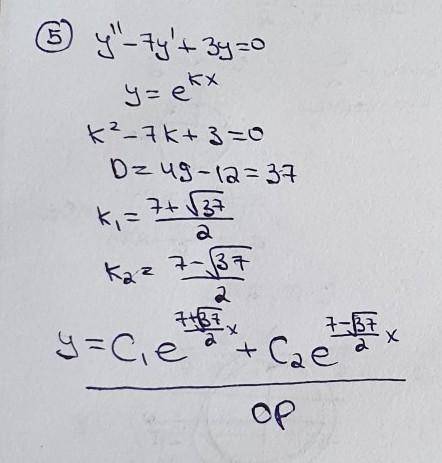 ⑤ y''-7y'+3y=0
y=e^{kx}
k²-7k+3=0
D=49-12=37
k₁=\frac{7+\sqrt{37}}{2}
k₂=\frac{7-\sqrt{37}}{2}
y=C₁e^{\frac{7+\sqrt{37}}{2}x}+C₂e^{\frac{7-\sqrt{37}}{2}x}
ОР